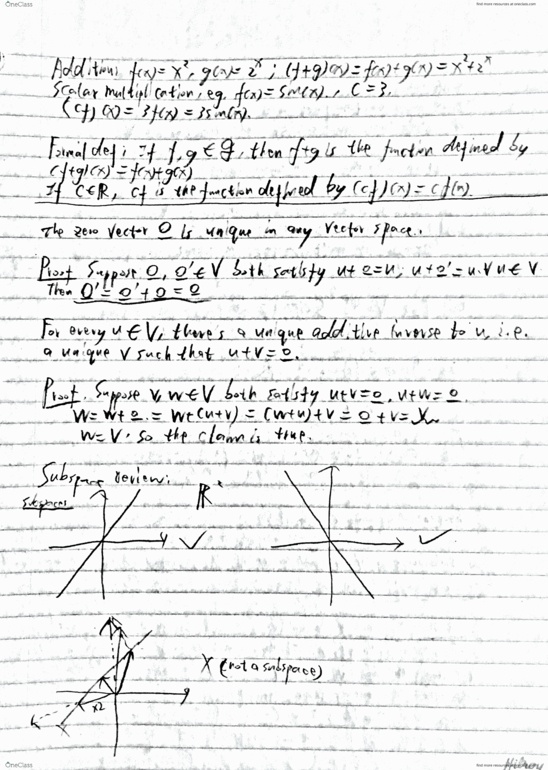 OneClass
find more resources at oneclass.com
Addition: f(x)= x², g(x)= 2ˣ ; (f+g)(x) = f(x)+g(x) = x²+2ˣ
Scalar multiplication, eg. f(x)= sin(x)., C = 3.
(cf)(x) = 3f(x) = 3sin(x).
Formal def: If f, g ∈ F, then f+g is the function defined by
(f+g)(x) = f(x)+g(x)
If C∈R, cf is the function defined by (cf)(x) = cf(x).
The zero vector 0 is unique in any vector space.
Proof Suppose 0, 0' ∈ V both satisfy u+0=u, u+0'=u. ∀u ∈ V
Then 0' = 0'+0 = 0
For every u ∈ V, there's a unique additive inverse to u, i.e.
a unique v such that u+v=0.
Proof. Suppose v, w ∈ V both satisfy u+v=0, u+w=0
w = w+0 = w+(u+v) = (w+u)+v = 0+v =
w = v. so the claim is true.
Subspace review:
Subspaces
R
✓
✓
x2
X (not a subspace)
Hilroy
OneClass
find more resources at oneclass.com